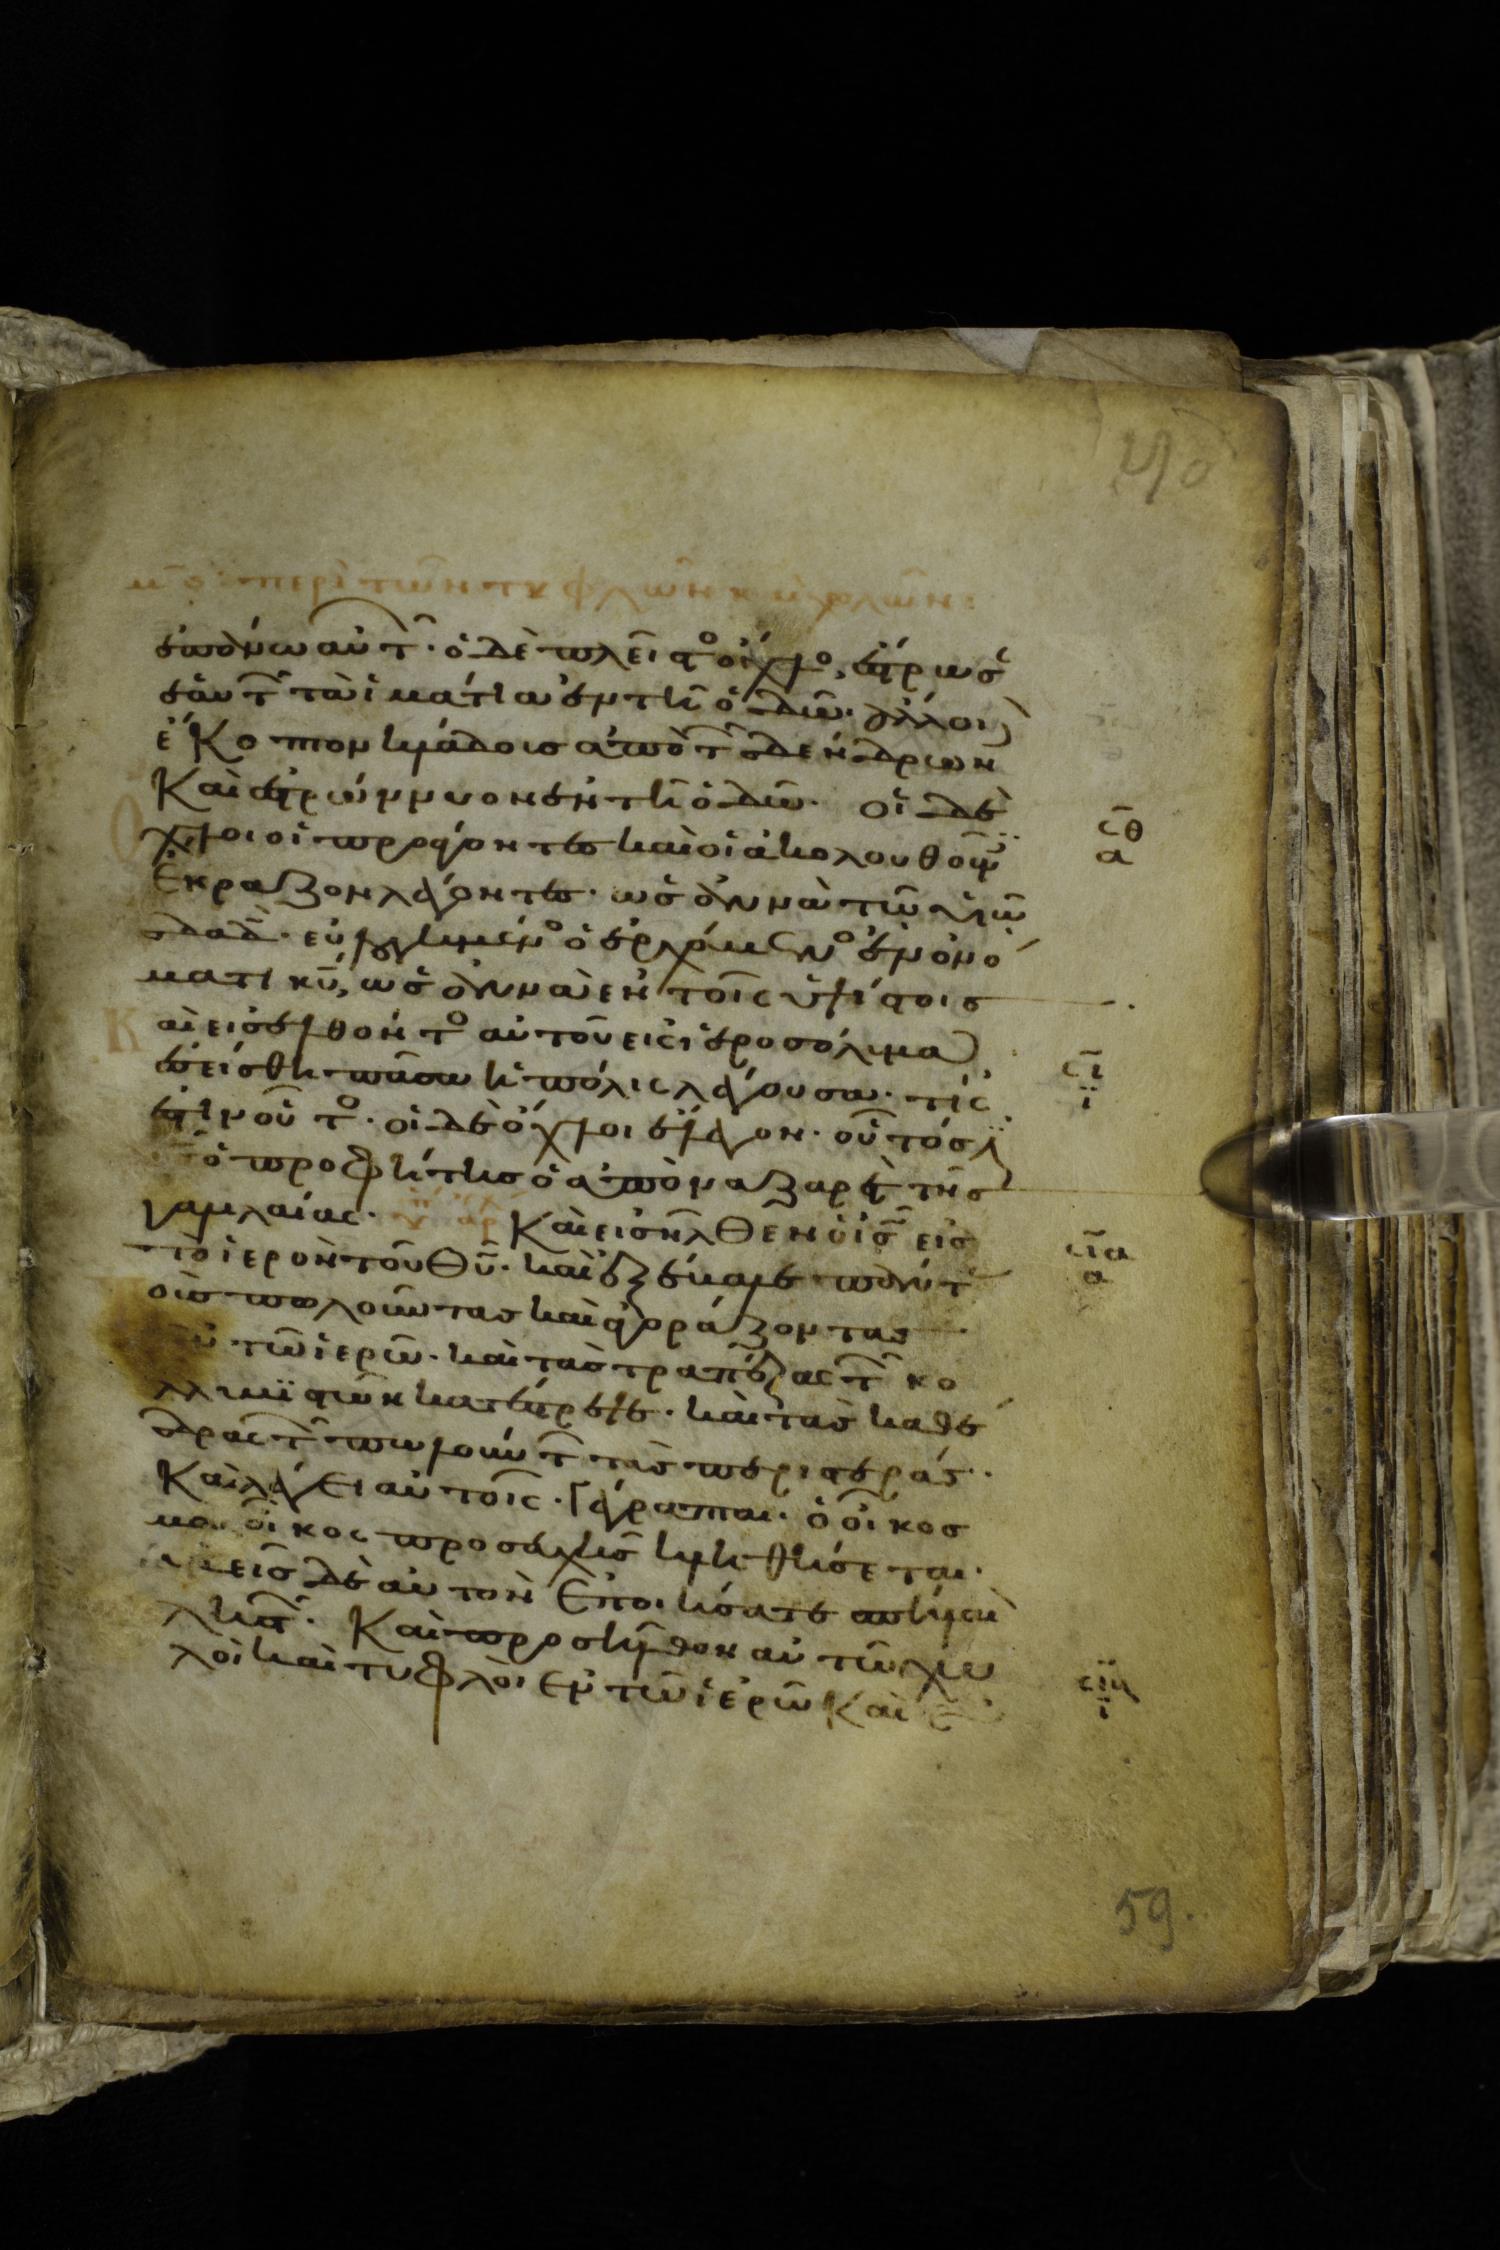 περὶ τῶν τυφλῶν κ χωλῶν:
ἐπάνω αὐτ̑· ὁ δὲ πλεῖστο ὄχλο, ἔστρωσ
ἑαυτ̑ τὰ ἱμάτια ἐν τῆ ὁδῶ· ἄλλοι
ἔκοπτον κλάδους ἀπὸ τ̑ δένδρων
Καὶ ἐστρώννυον ἐν τῆ ὁδῶ· Οἱ δὲ
ὄχλοι οἱ προάγοντες καὶ οἱ ἀκολουθοῦντ
Ἔκραζον λέγοντες· ὡσαννὰ τῶ υἱῶ
δαδ̄· εὐλογημένο ὁ ἐρχόμενο ἐν ὀνό
ματι κ̄υ, ὡσαννὰ ἐν τοῖς ὑψίστοις
Καὶ εἰσελθόντο αὐτοῦ εἰς ἱεροσόλυμα
ἐσείσθη πᾶσα ἡ πόλις λέγουσα· τίς
ἐστὶν οὗτο· οἱ δὲ ὄχλοι ἔλεγον· οὗτός
ὁ προφήτης ὁ ἀπὸ ναζαρὲτ τῆς
γαλιλαίας· Καὶ εἰσῆλθεν ὁ ι̅ς̅ εἰς
τὸ ἱερὸν τοῦ Θ̄ῦ· καὶ ἐξέβαλε πάντ
τοὺς πωλοῦντας καὶ ἀγοράζοντας
τῶ ἱερῶ· καὶ τὰς τραπέζας τ̑ κο
λλυβιστῶν κατέστρεψε· καὶ τὰς καθέ
δρας τ̑ πωλούντ̑ τὰς περιστεράς·
Καὶ λέγει αὐτοῖς· Γέγραπται· ὁ οἶκος
μου οἶκος προσευχῆς κληθήσεται·
ὑμεῖς δὲ αὐτὸν Ἐποιήσατε σπήλαι
ληστ̑· Καὶ προσῆλθον αὐτῶ χω
λοὶ καὶ τυφλοὶ ἐν τῶ ἱερῶ Καὶ
σ̄θ
α
σ̄ι
ϊ
σ̄ια
α
σ̄ιβ
ι
59.